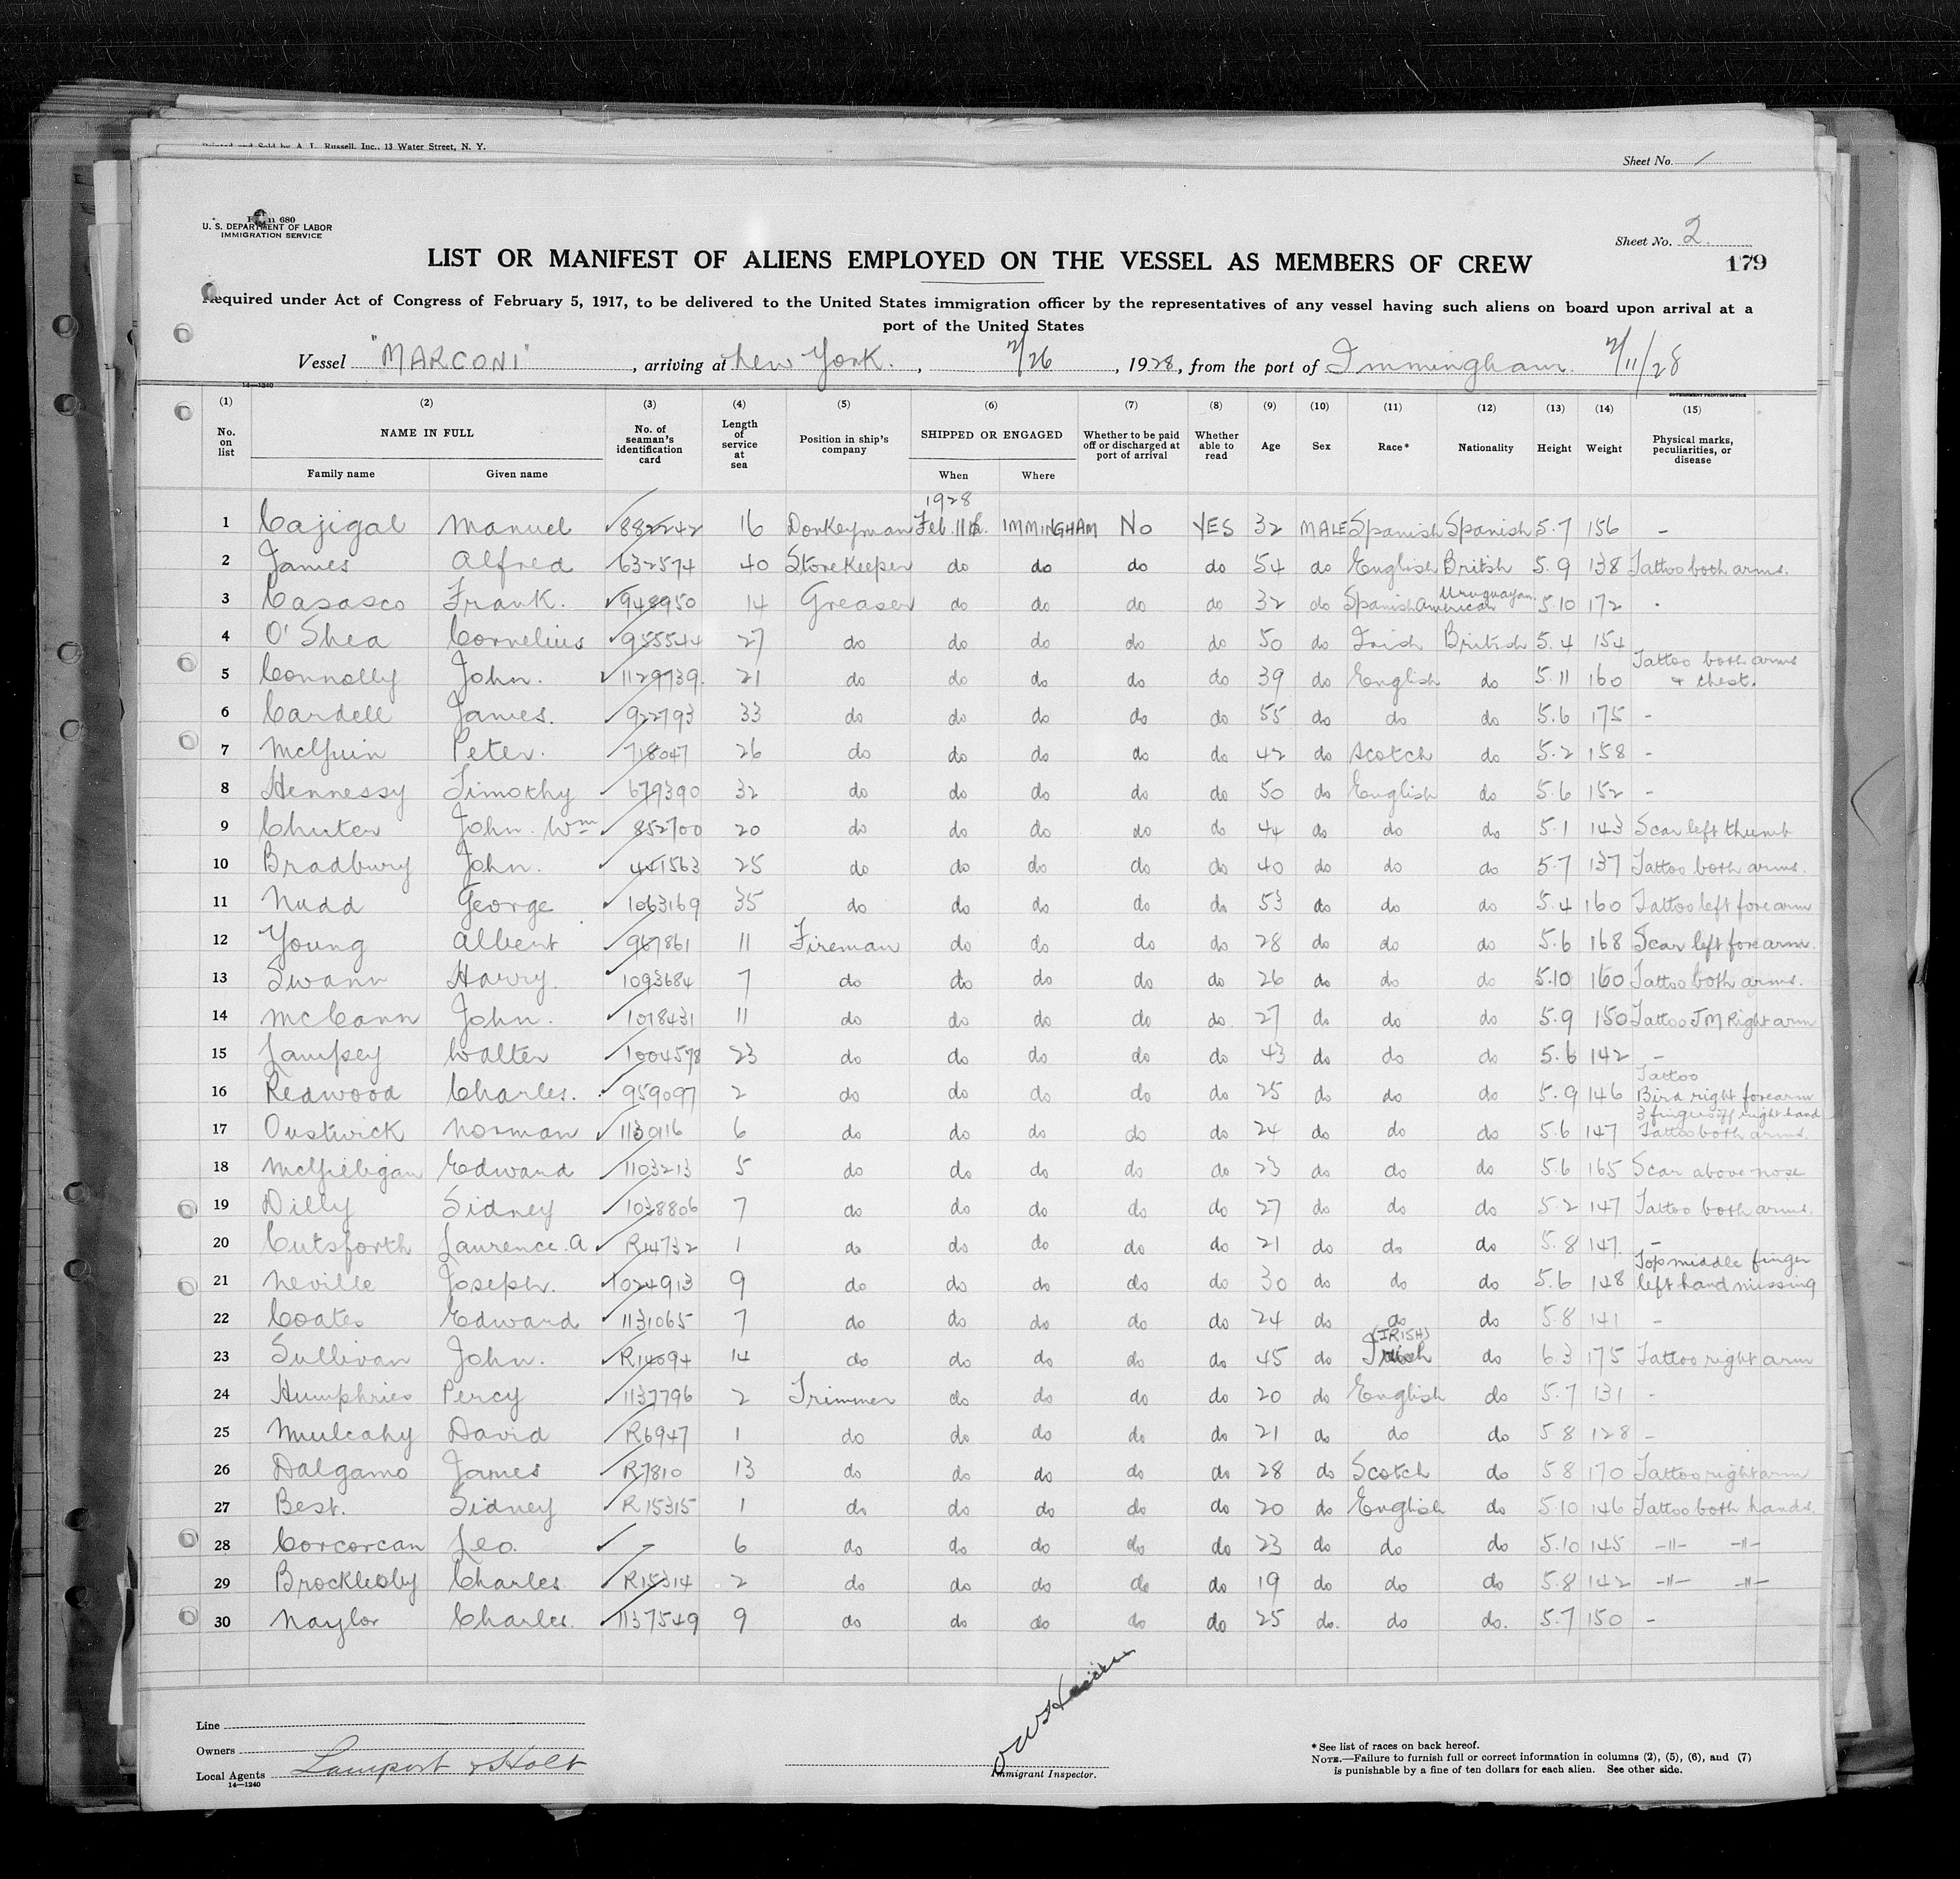 Printed and Sold by A. L. Russell, Inc., 13 Water Street, N. Y.
Sheet No. 1
Form 680
U. S. DEPARTMENT OF LABOR
IMMIGRATION SERVICE
Sheet No. 2.
LIST OR MANIFEST OF ALIENS EMPLOYED ON THE VESSEL AS MEMBERS OF CREW
179
Required under Act of Congress of February 5, 1917, to be delivered to the United States immigration officer by the representatives of any vessel having such aliens on board upon arrival at a
port of the United States
Vessel "MARCONI", arriving at New York., 2/26, 1928, from the port of Immingham. 2/11/28
14—1240
GOVERNMENT PRINTING OFFICE
(1) (2) (3) (4) (5) (6) (7) (8) (9) (10) (11) (12) (13) (14) (15)
No. on list NAME IN FULL No. of seaman's identification card Length of service at sea Position in ship's company SHIPPED OR ENGAGED Whether to be paid off or discharged at port of arrival Whether able to read Age Sex Race* Nationality Height Weight Physical marks, peculiarities, or disease
Family name Given name When Where
1928
1 Cajigal Manuel 882242 16 Donkeyman Feb. 11th. IMMINGHAM No YES 32 MALE Spanish Spanish 5.7 156 -
2 James Alfred 632574 40 StoreKeeper do do do do 54 do English British 5.9 138 Tattoo both arms.
3 Casasco Frank. 948950 14 Greaser do do do do 32 do Spanish American Uruguayan. 5.10 172 -
4 O'Shea Cornelius 955544 27 do do do do do 50 do Irish British 5.4 154
5 Connolly John. 1129739. 21 do do do do do 39 do English do 5.11 160 Tattoo both arms & chest.
6 Cardell James. 922793 33 do do do do do 55 do do do 5.6 175 -
7 McGuin Peter. 718047 26 do do do do do 42 do Scotch do 5.2 158 -
8 Hennessy Timothy 679390 32 do do do do do 50 do English do 5.6 152 -
9 Chuter John. Wm 852700 20 do do do do do 44 do do do 5.1 143 Scar left thumb
10 Bradbury John. 441563 25 do do do do do 40 do do do 5.7 137 Tattoo both arms.
11 Nudd George 1063169 35 do do do do do 53 do do do 5.4 160 Tattoo left forearm
12 Young Albert 967861 11 Fireman do do do do 28 do do do 5.6 168 Scar left forearm.
13 Swann Harry. 1093684 7 do do do do do 26 do do do 5.10 160 Tattoo both arms.
14 McCann John. 1018431 11 do do do do do. 27 do do do 5.9 150 Tattoo JM Right arm
15 Lampsey Walter 1004578 23 do do do do do 43 do do do 5.6 142 -
16 Redwood Charles. 959097 2 do do do do do 25 do do do 5.9 146 Tattoo Bird right forearm
17 Oustwick Norman 1130116 6 do do do do do 24 do do do 5.6 147 3 fingers off right hand Tattoo both arms.
18 McGilligan Edward 1103213 5 do do do do do 23 do do do 5.6 165 Scar above nose
19 Dilly Sidney 1038806 7 do do do do do 27 do do do 5.2 147 Tattoo both arms.
20 Cutsforth Laurence. A R14732 1 do do do do do 21 do do do 5.8 147. -
21 Neville Joseph. 1024913 9 do do do do do 30 do do do 5.6 148 Top middle finger left hand missing
22 Coates Edward 1131065 7 do do do do do 24 do do do 5.8 141 -
23 Sullivan John. R14094 14 do do do do do 45 do Irish (IRISH) do 6.3 175 Tattoo right arm
24 Humphries Percy 1137796 2 Trimmer do do do do 20 do English do 5.7 131 -
25 Mulcahy David R6947 1 do do do do do 21 do do do 5.8 128 -
26 Dalgamo James R7810 13 do do do do do 28 do Scotch do 5.8 170 Tattoo right arm
27 Best. Sidney R15315 1 do do do do do 20 do English do 5.10 146 Tattoo both hands.
28 Corcorcan Leo. - 6 do do do do do 23 do do do 5.10 145 -"- -"-
29 Brocklesby Charles R15314 2 do do do do do 19 do do do 5.8 142 -"- -"-
30 Naylor Charles. 1137549 9 do do do do do 25 do. do do. 5.7 150 -
Line
Owners
Local Agents Lamport & Holt
14—1240
Immigrant Inspector.
* See list of races on back hereof.
NOTE.—Failure to furnish full or correct information in columns (2), (5), (6), and (7)
is punishable by a fine of ten dollars for each alien. See other side.